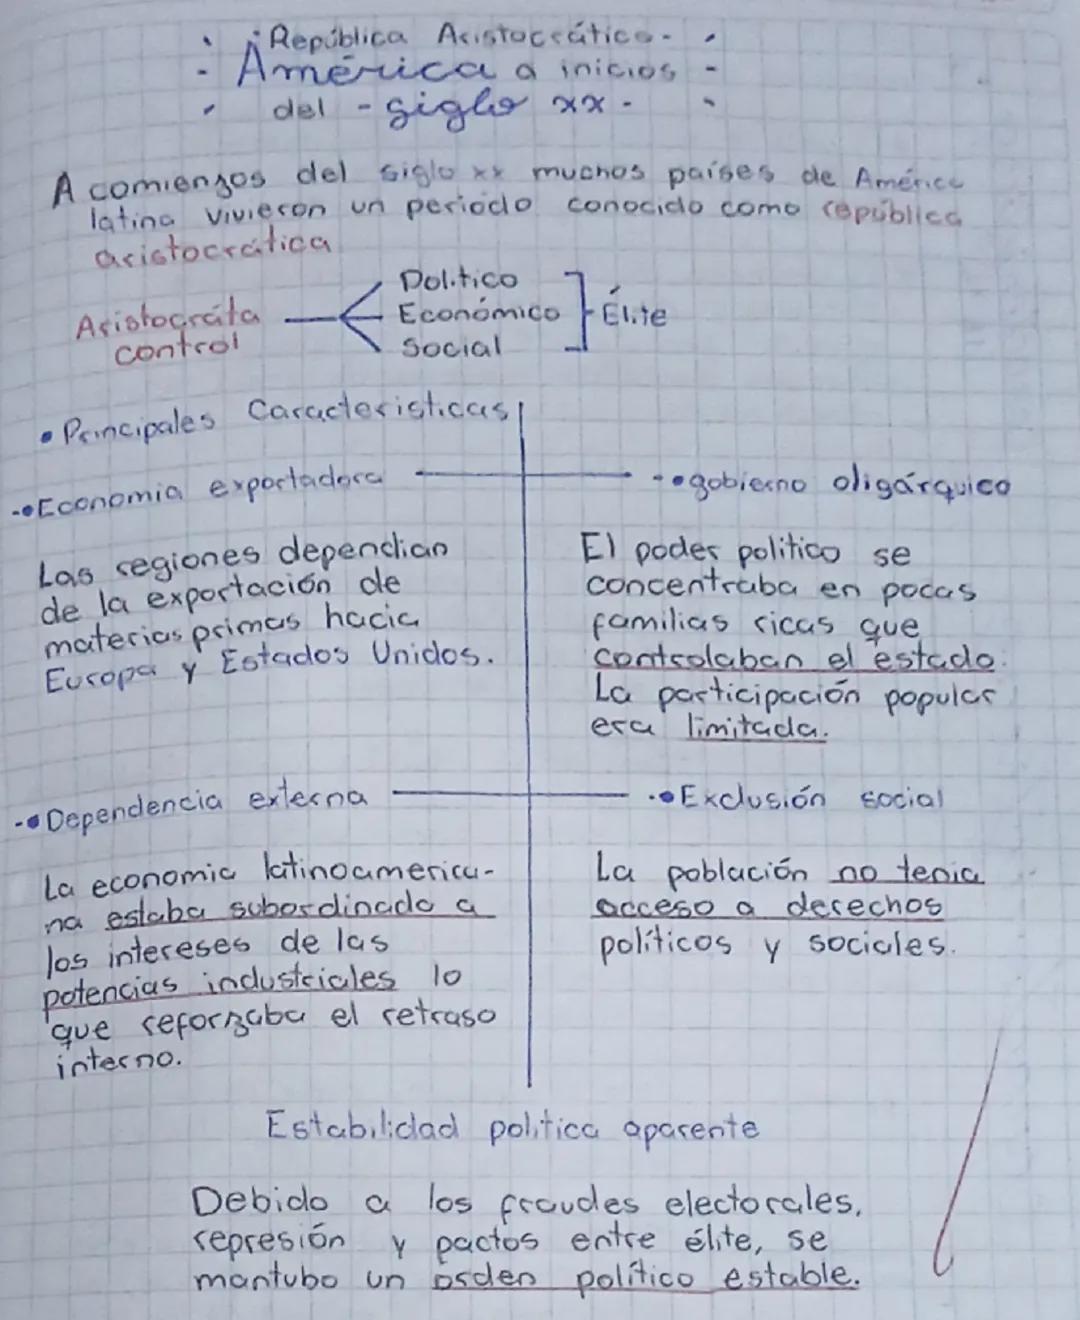 República Aristocrática
América a inicios
del - siglo xx -
A comienzos del siglo xx muchos países de América
latina vivieron un periodo conocido como república
aristocrática
Aristocráta
control
Político
Económico
Social
Élite
• Principales Caracteristicas
-• Economia exportadora
Las regiones dependian
de la exportación de
materias primas hacia
Europa y Estados Unidos.
-• gobierno oligárquico
El poder politico se
concentraba en pocas
familias ricas que
controlaban el estado.
La participación popular
era limitada.
-• Dependencia externa
La economia latinoamerica-
na estaba subordinada a
los intereses de las
potencias industriales lo
que reforzaba el retraso
interno.
-• Exclusión social
La población no tenia
acceso a derechos
políticos y sociales.
Estabilidad politica aparente
Debido a los fraudes electorales,
represión y pactos entre élite, se
mantubo un orden político estable.